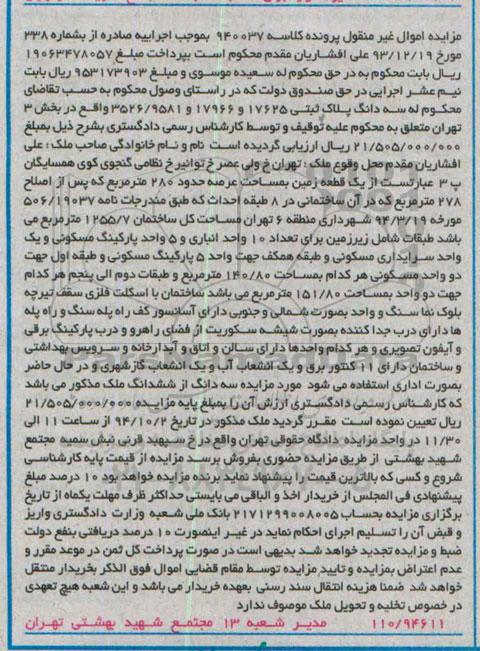 مزایده اموال غیر منقول پرونده کلاسه ۹۴۰۰۳۷ بموجب اجراییه صادره از بشماره ۳۳۸
مورخ ۹۳/۱۲/۱۹ علی افشاریان مقدم محکوم است بپرداخت مبلغ ۱۹۰۶۳۴۷۸۰۵۷
ریال بابت محکوم به در حق محکوم له سعیده موسوی و مبلغ ۹۵۳۱۷۳۹۰۳ ریال بابت
نیم عشر اجرایی در حق صندوق دولت که در راستای وصول محکوم به حسب تقاضای
محکوم له سه دانگ پلاک ثبتی ۱۷۶۲۵ و ۱۷۹۶۶ و ۳۵۲۶/۹۵۸۱ واقع در بخش ۳
تهران متعلق به محکوم علیه توقیف و توسط کارشناس رسمی دادگستری بشرح ذیل بمبلغ
۲۱/۵۰۵/۰۰۰/۰۰۰ ریال ارزیابی گردیده است نام و نام خانوادگی صاحب ملک : علی
افشاریان مقدم محل وقوع ملک : تهران خ ولی عصر خ توانیر خ نظامی گنجوی کوی همسایگان
پ ۳ عبارتست از یک قطعه زمین بمساحت عرصه حدود ۲۸۰ مترمربع که پس از اصلاح
۲۷۸ مترمربع که در آن ساختمانی در ۸ طبقه احداث که طبق مندرجات نامه ۵۰۶/۱۹۰۳۷
مورخه ۹۴/۳/۱۹ شهرداری منطقه ۶ تهران مساحت کل ساختمان ۱۲۵۵/۷ مترمربع می
باشد طبقات شامل زیرزمین برای تعداد ۱۰ واحد انباری و ۵ واحد پارکینگ مسکونی و یک
واحد سرایداری مسکونی و طبقه همکف جهت واحد ۵ پارکینگ مسکونی و طبقه اول جهت
دو واحد مسکونی هر کدام بمساحت ۱۴۰/۸۰ مترمربع و طبقات دوم الی پنجم هر کدام
جهت دو واحد بمساحت ۱۵۱/۸۰ مترمربع می باشد ساختمان با اسکلت فلزی سقف تیرچه
بلوک نما سنگ و واحد بصورت شمالی و جنوبی دارای آسانسور کف راه پله سنگ و راه پله
ها دارای درب جدا کننده بصورت شیشه سکوریت از فضای راهرو و درب پارکینگ برقی
و آیفون تصویری و هر کدام واحدها دارای سالن و اتاق و آبدارخانه و سرویس بهداشتی
و ساختمان دارای ۱۱ کنتور برق و یک انشعاب آب و یک انشعاب گاز شهری و در حال حاضر
بصورت اداری استفاده می شود مورد مزایده سه دانگ از ششدانگ ملک مذکور می باشد
که کارشناس رسمی دادگستری ارزش آن را بمبلغ پایه مزایده ۲۱/۵۰۵/۰۰۰/۰۰۰
ریال تعیین نموده است مقرر گردید ملک مذکور در تاریخ ۹۴/۱۰/۲ از ساعت ۱۱ الی
۱۱/۳۰ در واحد مزایده دادگاه حقوقی تهران واقع در خ سپهبد قرنی نبش سمیه مجتمع
شهید بهشتی از طریق مزایده حضوری بفروش برسد مزایده از قیمت پایه کارشناسی
شروع و کسی که بالاترین قیمت را پیشنهاد نماید برنده مزایده خواهد بود ۱۰ درصد مبلغ
پیشنهادی فی المجلس از خریدار اخذ و الباقی می بایستی حداکثر ظرف مهلت یکماه از تاریخ
برگزاری مزایده بحساب ۲۱۷۱۲۹۹۰۰۸۰۰۵ بانک ملی شعبه وزارت دادگستری واریز
و قبض آن را تسلیم اجرای احکام نماید در غیر اینصورت ۱۰ درصد دریافتی بنفع دولت
ضبط و مزایده تجدید خواهد شد بدیهی است در صورت پرداخت کل ثمن در موعد مقرر و
عدم اعتراض بمزایده و تایید مزایده توسط مقام قضایی اموال فوق الذکر بخریدار منتقل
خواهد شد ضمنا هزینه انتقال سند رسمی بعهده خریدار می باشد و این شعبه هیچ تعهدی
در خصوص تخلیه و تحویل ملک موصوف ندارد
۱۱۰/۹۴۶۱۱ مدیر شعبه ۱۳ مجتمع شهید بهشتی تهران